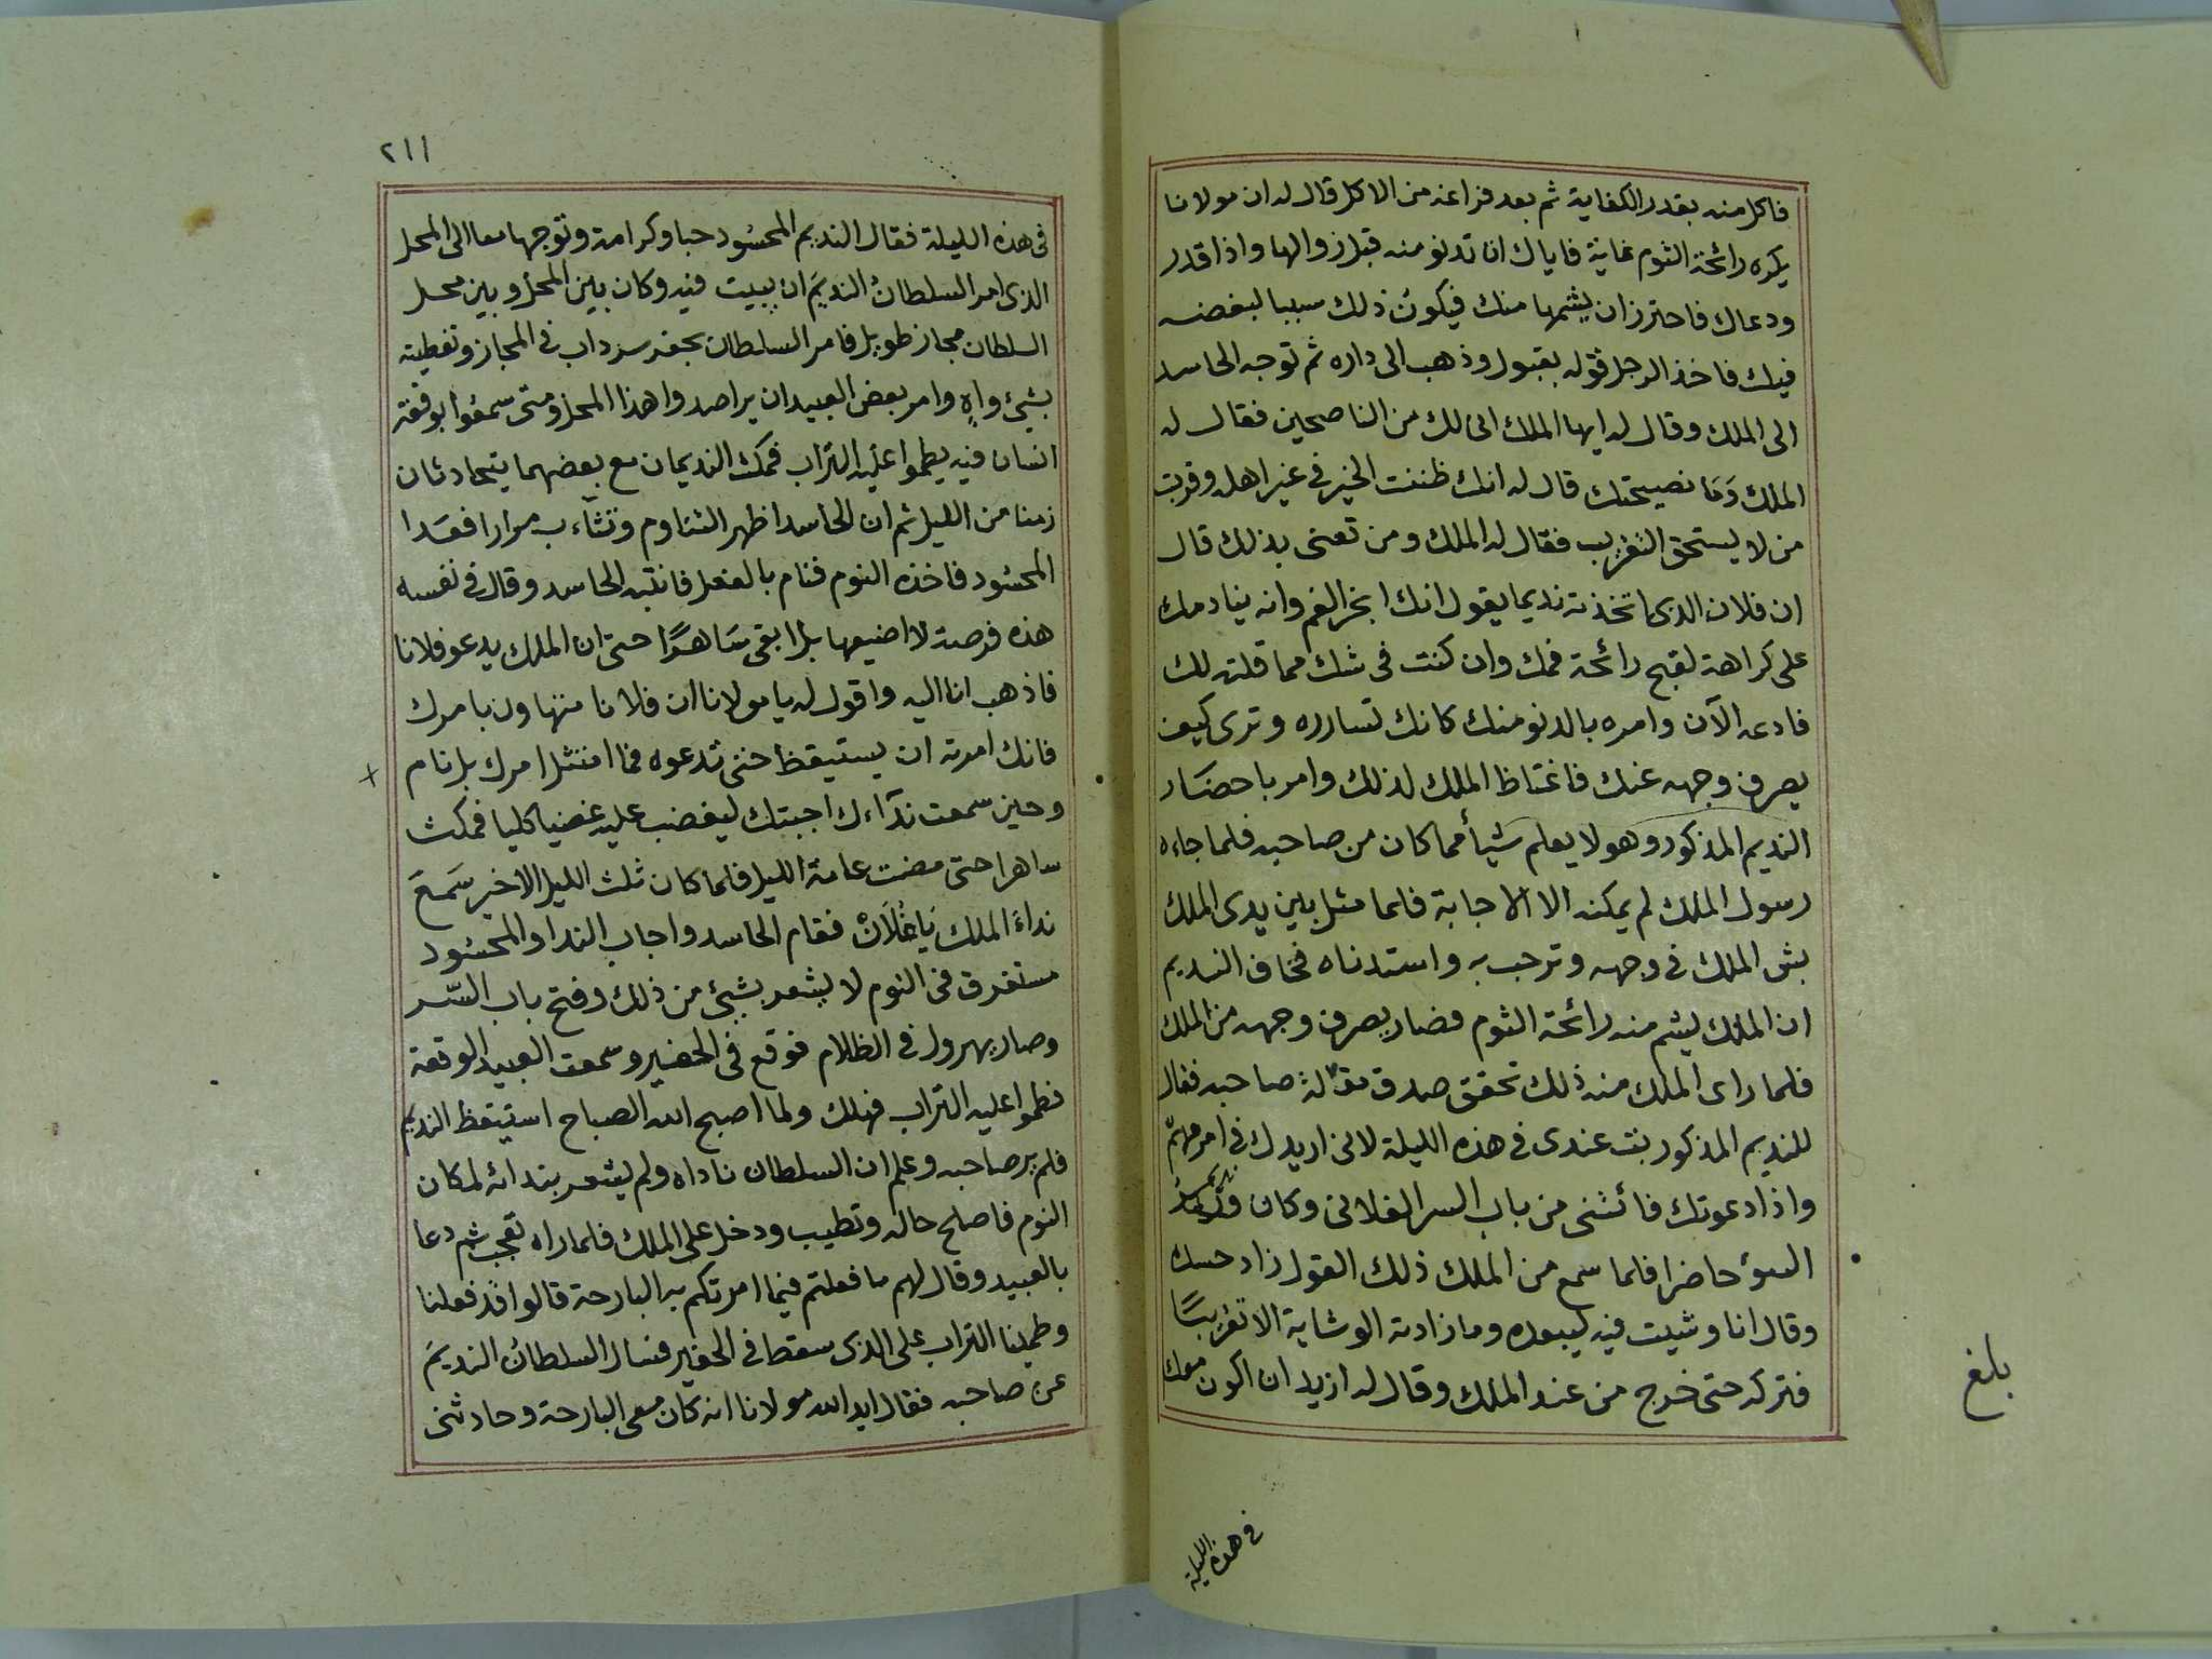 فاكل منه بقدر الكفاية ثم بعد فراغه من الاكل قال له ان مولانا
يكره رائحة الثوم غاية فاياك ان تدنو منه قبل زوالها واذا قدر
ودعاك فاحترز ان يشمها منك فيكون ذلك سببا لبغضه
فيك فاخذ الرجل قوله بقبول وذهب الى داره ثم توجه الحاسد
الى الملك وقال له ايها الملك انى لك من الناصحين فقال له
الملك وَمَا نصيحتك قال له انك ظننت الخير فى غير اهله وقربت
من لا يستحق التقريب فقال له الملك ومن تعنى بذلك قال
ان فلان الذى اتخذته نديما يقول انك ابخر الفم وانه ينادمك
على كراهة لقبح رائحة فمك وان كنت فى شك مما قلته لك
فادعه الآن وامره بالدنو منك كانك تسارره وترى كيف
يصرف وجهه عنك فاغتاظ الملك لذلك وامر باحضَار
النديم المذكور وهو لا يعلم شيأ مما كان من صاحبه فلما جاءه
رسول الملك لم يمكنه الا الاجابة فلما مثل بين يدى الملك
بش الملك فى وجهه وترحب به واستدناه فخاف النديم
ان الملك يشم منه رائحة الثوم فصار يصرف وجهه من الملك
فلما راى الملك منه ذلك تحقق صدق مقالة صاحبه فقال
للنديم المذكور بنت عندى فى هذه الليلة لانى اريدك فى امر مهمّ
واذا دعوتك فائتنى من باب السر الفلانى وكان نديمه
السوء حاضرا فلما سمع من الملك ذلك القول زاد حسده
وقال انا وشيت فيه ليبعده وما زادته الوشاية الا تقريبًا
فتركه حتى خرج من عند الملك وقال له اريد ان اكون معك
فى هذه الليلة
بلغ
٢١١
فى هذه الليلة فقال النديم المحسُود حبا وكرامة وتوجها معا الى المحل
الذى امر السلطانُ النديمَ ان يبيت فيه وكان بين المحل وبين محل
السلطان مجاز طويل فامر السلطان بحفر سرداب فى المجاز وتغطيته
بشيئ واهٍ وامر بعض العبيد ان يراصدوا هذا المحل ومتى سمعُوا بوقعة
انسان فيه يطموا عليه التراب فمكث النديمان مع بعضهما يتحادثان
زمنا من الليل ثم ان الحاسد اظهر التناوم وتثآءب مرارا فعَدا
المحسُود فاخذه النوم فنام بالفعل فانتبه الحاسد وقال فى نفسه
هذه فرصة لا اضيعها بل ابقى سَاهرًا حتى ان الملك يدعو فلانا
فاذهب انا اليه واقول له يا مولانا ان فلانا متهاون بامرك
فانك امرته ان يستيقظ حتى تدعوه فما امتثل امرك بل نام
وحين سمعت ندآءك اجبتك ليغضب عليه غضبا كليا فمكث
ساهرا حتى مضت عامة الليل فلما كان ثلث الليل الاخير سَمعَ
نداءَ الملك يَا فُلَانْ فقام الحاسد واجاب الندا والمحسُود
مستغرق فى النوم لا يشعر بشيئ من ذلك وفتح باب السّر
وصار يهرول فى الظلام فوقع فى الحفير وسمعت العبيد الوقعة
فطموا عليه التراب فهلك ولما اصبح الله الصباح استيقظ النديم
فلم ير صاحبه وعلم ان السلطان ناداه ولم يشعر بندائه لمكان
النوم فاصلح حاله وتطيب ودخل على الملك فلما راه تعجب ثم دعا
بالعبيد وقال لهم ما فعلتم فيما امرتكم به البارحة قالوا قد فعلنا
وطمينا التراب على الذى سقط فى الحفير فسال السلطانُ النديمَ
عن صاحبه فقال ايد الله مولانا انه كان معى البارحة وحادثنى